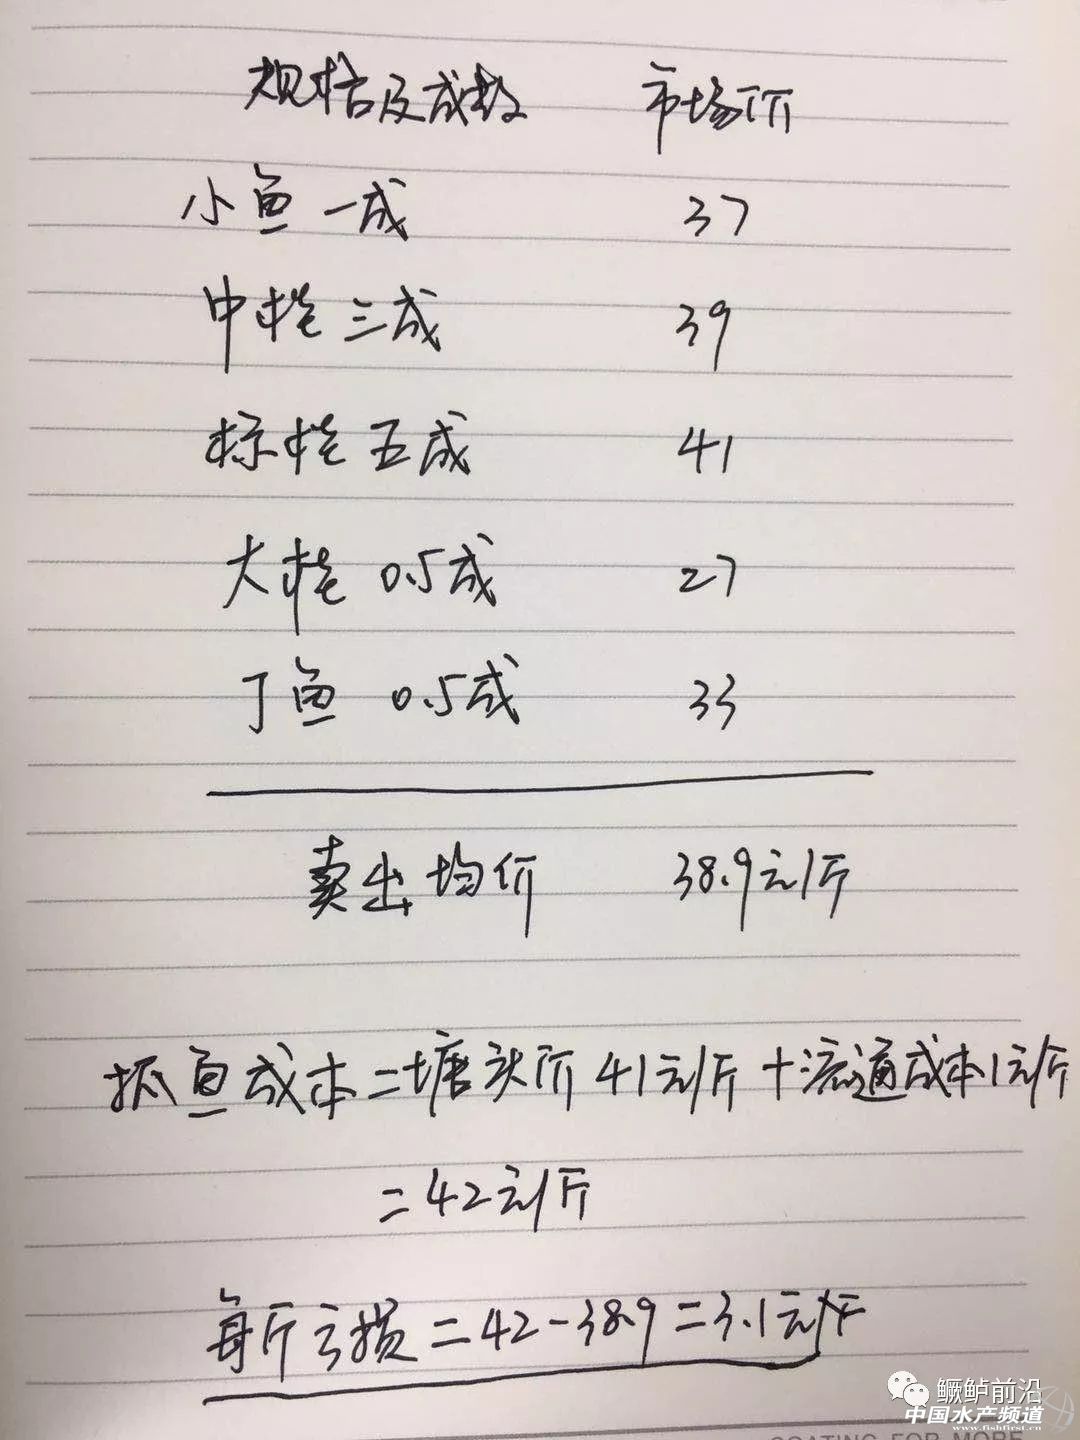 规格及成数 市场价
小鱼 一成 37
中桩 三成 39
标桩 五成 41
大桩 0.5成 27
丁鱼 0.5成 33
卖出均价 38.9元/斤
抓鱼成本=塘头价41元/斤+流通成本1元/斤
=42元/斤
每斤亏损=42-38.9=3.1元/斤
鳜鲈前沿
中国水产频道
www.fishfirst.cn
COATING FOR MORE